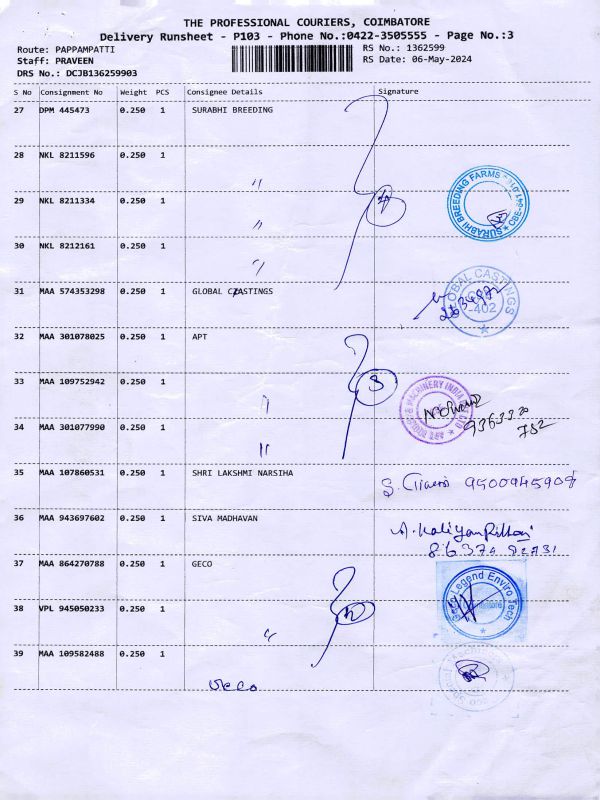 THE PROFESSIONAL COURIERS, COIMBATORE
Delivery Runsheet - P103 - Phone No.:0422-3505555 - Page No.:3
Route: PAPPAMPATTI
Staff: PRAVEEN
DRS No.: DCJB136259903
RS No.: 1362599
RS Date: 06-May-2024
S No Consignment No Weight PCS Consignee Details Signature
27 DPM 445473 0.250 1 SURABHI BREEDING
28 NKL 8211596 0.250 1 "
29 NKL 8211334 0.250 1 "
SURABHI BREEDING FARMS
30 NKL 8212161 0.250 1 "
31 MAA 574353298 0.250 1 GLOBAL CASTINGS
GLOBAL CASTINGS
32 MAA 301078025 0.250 1 APT
33 MAA 109752942 0.250 1 "
3
34 MAA 301077990 0.250 1 "
35 MAA 107860531 0.250 1 SHRI LAKSHMI NARSIHA
9500945908
36 MAA 943697602 0.250 1 SIVA MADHAVAN
86374 92731
37 MAA 864270788 0.250 1 GECO
Legend Enviro Tech
38 VPL 945050233 0.250 1 "
39 MAA 109582488 0.250 1